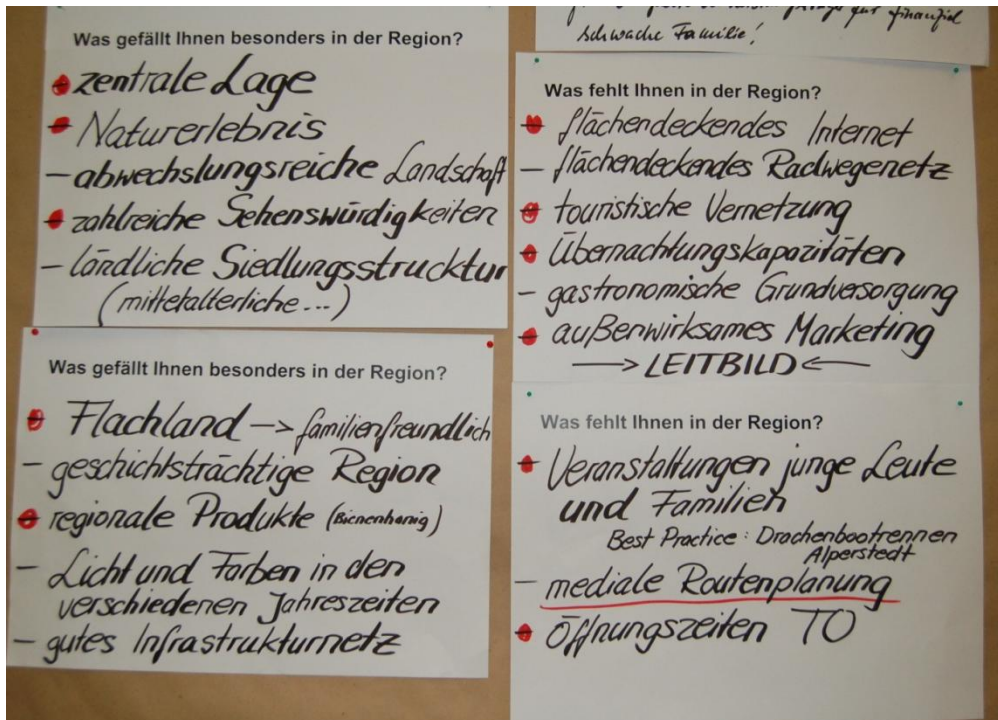 Was gefällt Ihnen besonders in der Region?
zentrale Lage
- Naturerlebnis
- abwechslungsreiche Landschaft
- zahlreiche Sehenswürdigkeiten
- ländliche Siedlungsstrucktur
(mittelalterliche...)
Was gefällt Ihnen besonders in der Region?
- Flachland -> familienfreundlich
- geschichtsträchtige Region
- regionale Produkte (Bienenhonig)
- Licht und Farben in den
verschiedenen Jahreszeiten
- gutes Infrastrukturnetz
gut finanziel
schwache Familie!
Was fehlt Ihnen in der Region?
- flächendeckendes Internet
- flächendeckendes Radwegenetz
- touristische Vernetzung
- Übernachtungskapazitäten
- gastronomische Grundversorgung
- außenwirksames Marketing
-> LEITBILD <-
Was fehlt Ihnen in der Region?
- Veranstaltungen junge Leute
und Familien
Best Practice: Drachenbootrennen
Alperstedt
- mediale Routenplanung
- Öffnungszeiten TO